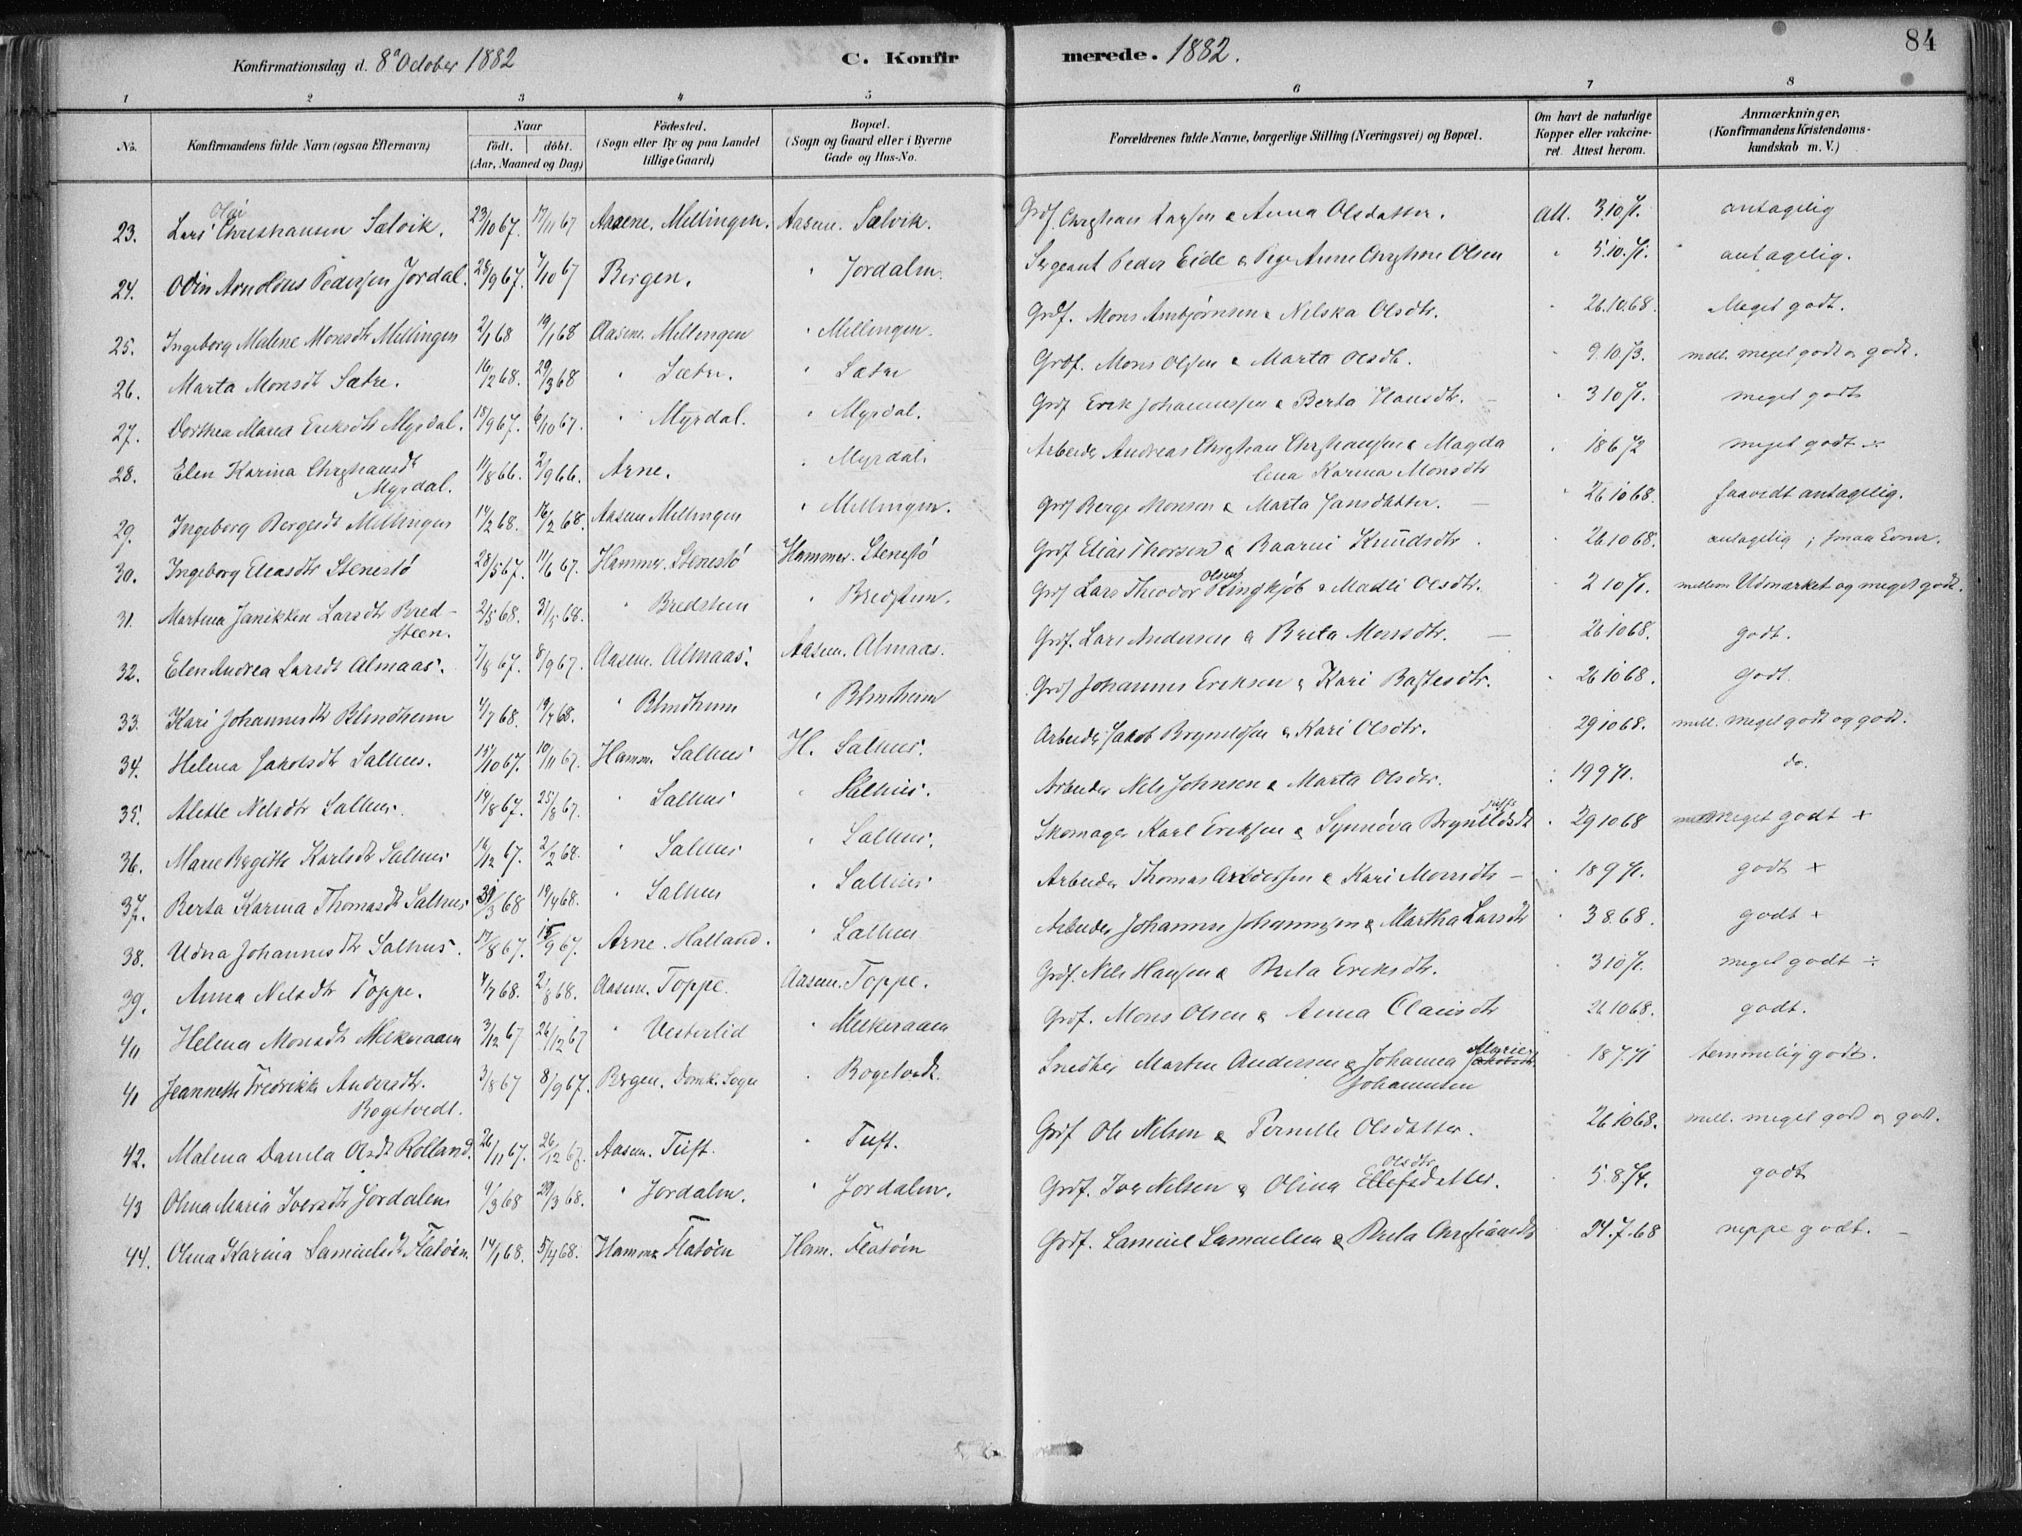 Konfirmationsdag d. 8de October 1882 C. Konfirmerede. 1882. 84
1 2 3 4 5 6 7 8
No. Konfirmandens fulde Navn (ogsaa Efternavn) Naar födt. döbt. (Aar, Maaned og Dag) Födested. (Sogn eller By og paa Landet tillige Gaard) Bopæl. (Sogn og Gaard eller i Byerne Gade og Hus-No. Forældrenes fulde Navne, borgerlige Stilling (Næringsvei) og Bopæl. Om havt de naturlige Kopper eller vakcineret. Attest herom. Anmærkninger. (Konfirmandens Kristendomskundskab m. V.)
23. Lars Olai Christiansen Sælvik. 23/10 67. 17/11 67 Aasene. Mellingen. Aasene. Sælvik. Grdf. Christian Larsen & Anna Olsdatter. Att. 3 10 71. antagelig
24. Odin Arnoldus Pedersen Jordal. 28/9 67. 7/10 67 Bergen. " Jordalen Sergeant Peder Eide & Pige Anne Christine Olsen " 5.10.71. antagelig.
25. Ingeborg Malene Monsdtr Mellingen 2/1 68 19/1 68 Aasene. Mellingen " Mellingen. Grdf. Mons Ambjörnsen & Nilska Olsdtr. " 26.10.68. Meget godt.
26. Marta Monsdt Sætre. 16/2 68. 29/3 68 " Sætre. " Sætre Grdf. Mons Olsen & Marta Olsdt. " 9.10.73. mell. meget godt og godt.
27. Dorthea Maria Eriksdtr Myrdal. 18/9 67. 6/10 67. " Myrdal. " Myrdal. Grdf Erik Johannessen & Berta Hansdtr. " 3 10 71. meget godt
28. Elen Karina Christiansdt Myrdal. 11/8 66. 2/9 66. Arne. " Myrdal. Arbeider Andreas Christian Christiansen & Magdalena Karina Monsdtr " 18 6 72 meget godt
29. Ingeborg Bergesdt Mellingen 14/2 68. 16/2 68. Aasene Mellingen " Mellingen. Grdf Berge Monsen & Marta Jansdatter. " 26 10 68. faavidt antagelig.
30. Ingeborg Eliasdtr Stenestö 28/5 67. 11/6 67. Hammer. Stenestö Hammer. Stenestö Grdf Elias Thorsen & Baarni Knudsdtr. " 26 10 68. antagelig; smaa Evner.
31. Martina Janikken Larsdtr Bredsteen. 2/5 68. 31/5 68. " Bredsteen " Bredsteen. Grdf Lars Theodor Olsen Ringkjöb & Madli Olsdtr. " 2 10 71. mellem Udmærket og meget godt.
32. Elen Andrea Larsdt Almaas. 7/8 67. 8/9 67. Aasene. Almaas. Aasene. Almaas. Grdf. Lars Andersen & Brita Monsdtr. " 26 10 68. godt.
33. Kari Johannesdtr Blindheim 4/7 68. 19/7 68. " Blindheim " Blindheim Grdf Johannes Eriksen & Kari Rastesdtr. " 26 10 68. godt.
34. Helena Jakobsdt Salhus. 15/10 67. 10/11 67. Hamm. Salhus H. Salhus. Arbeider Jakob Brynildsen & Kari Olsdtr. " 29 10 68. mell. meget godt og godt.
35. Alette Nelsdtr Salhus. 14/8 67. 25/8 67. " Salhus " Salhus. Arbeider Nels Johnsen & Marta Olsdtr. " 19 9 71. do.
36. Marie Birgitte Karlsdt Salhus 16/12 67. 2/2 68. " Salhus " Salhus. Skomager Karl Eriksen & Synnöva Brynildsdt " 29 10 68 meget godt +
37. Berta Karina Thomasdt Salhus 31/3 68 19/4 68. " Salhus " Salhus Arbeider Thomas Andersen & Kari Monsdtr " 18 9 71. godt +
38. Udna Johannesdtr Salhus. 17/8 67. 15/9 67. Arne. Halland. " Salhus Arbeider Johannes Johannesen & Martha Larsdtr " 3 8 68. godt +
39. Anna Nelsdtr Toppe. 4/7 68. 2/8 68. Aasene. Toppe. Aasene. Toppe. Grdf. Nels Hansen & Brita Eriksdtr. " 3 10 71. meget godt ÷
40 Helena Monsdtr Melkeraaen 3/12 67 26/12 67 " Vesterlid " Melkeraaen Grdf. Mons Olsen & Anna Clausdtr 26 10 68. godt.
41 Jeannette Fredrikke Andersdtr. Rogetvedt. 3/8 67 8/9 67. Bergen. Domk. Sogn " Rogetvedt. Snedker Morten Andersen & Johanna Marie Jakobsdt Johannesen " 18 7 71 temmelig godt.
42. Malena Danila Olsdt Rolland. 26/11 67. 26/12 67. Aasene. Tuft. " Tuft. Grdf Ole Nelsen & Pernille Olsdatter. " 26 10 68. mell. meget godt og godt.
43 Olina Maria Iversdtr Jordalen 9/3 68 29/3 68. " Jordalen. " Jordalen. Grdf. Iver Nelsen & Olina Olsdtr Ellefsdatter. " 5.8.74. godt
44. Olina Karina Samuelsdt Flatöen 14/1 68. 5/4 68. Hammer Flatöen Ham. Flatöen Grdf. Samuel Samuelsen & Brita Christiansdt 24.7.68 neppe godt.